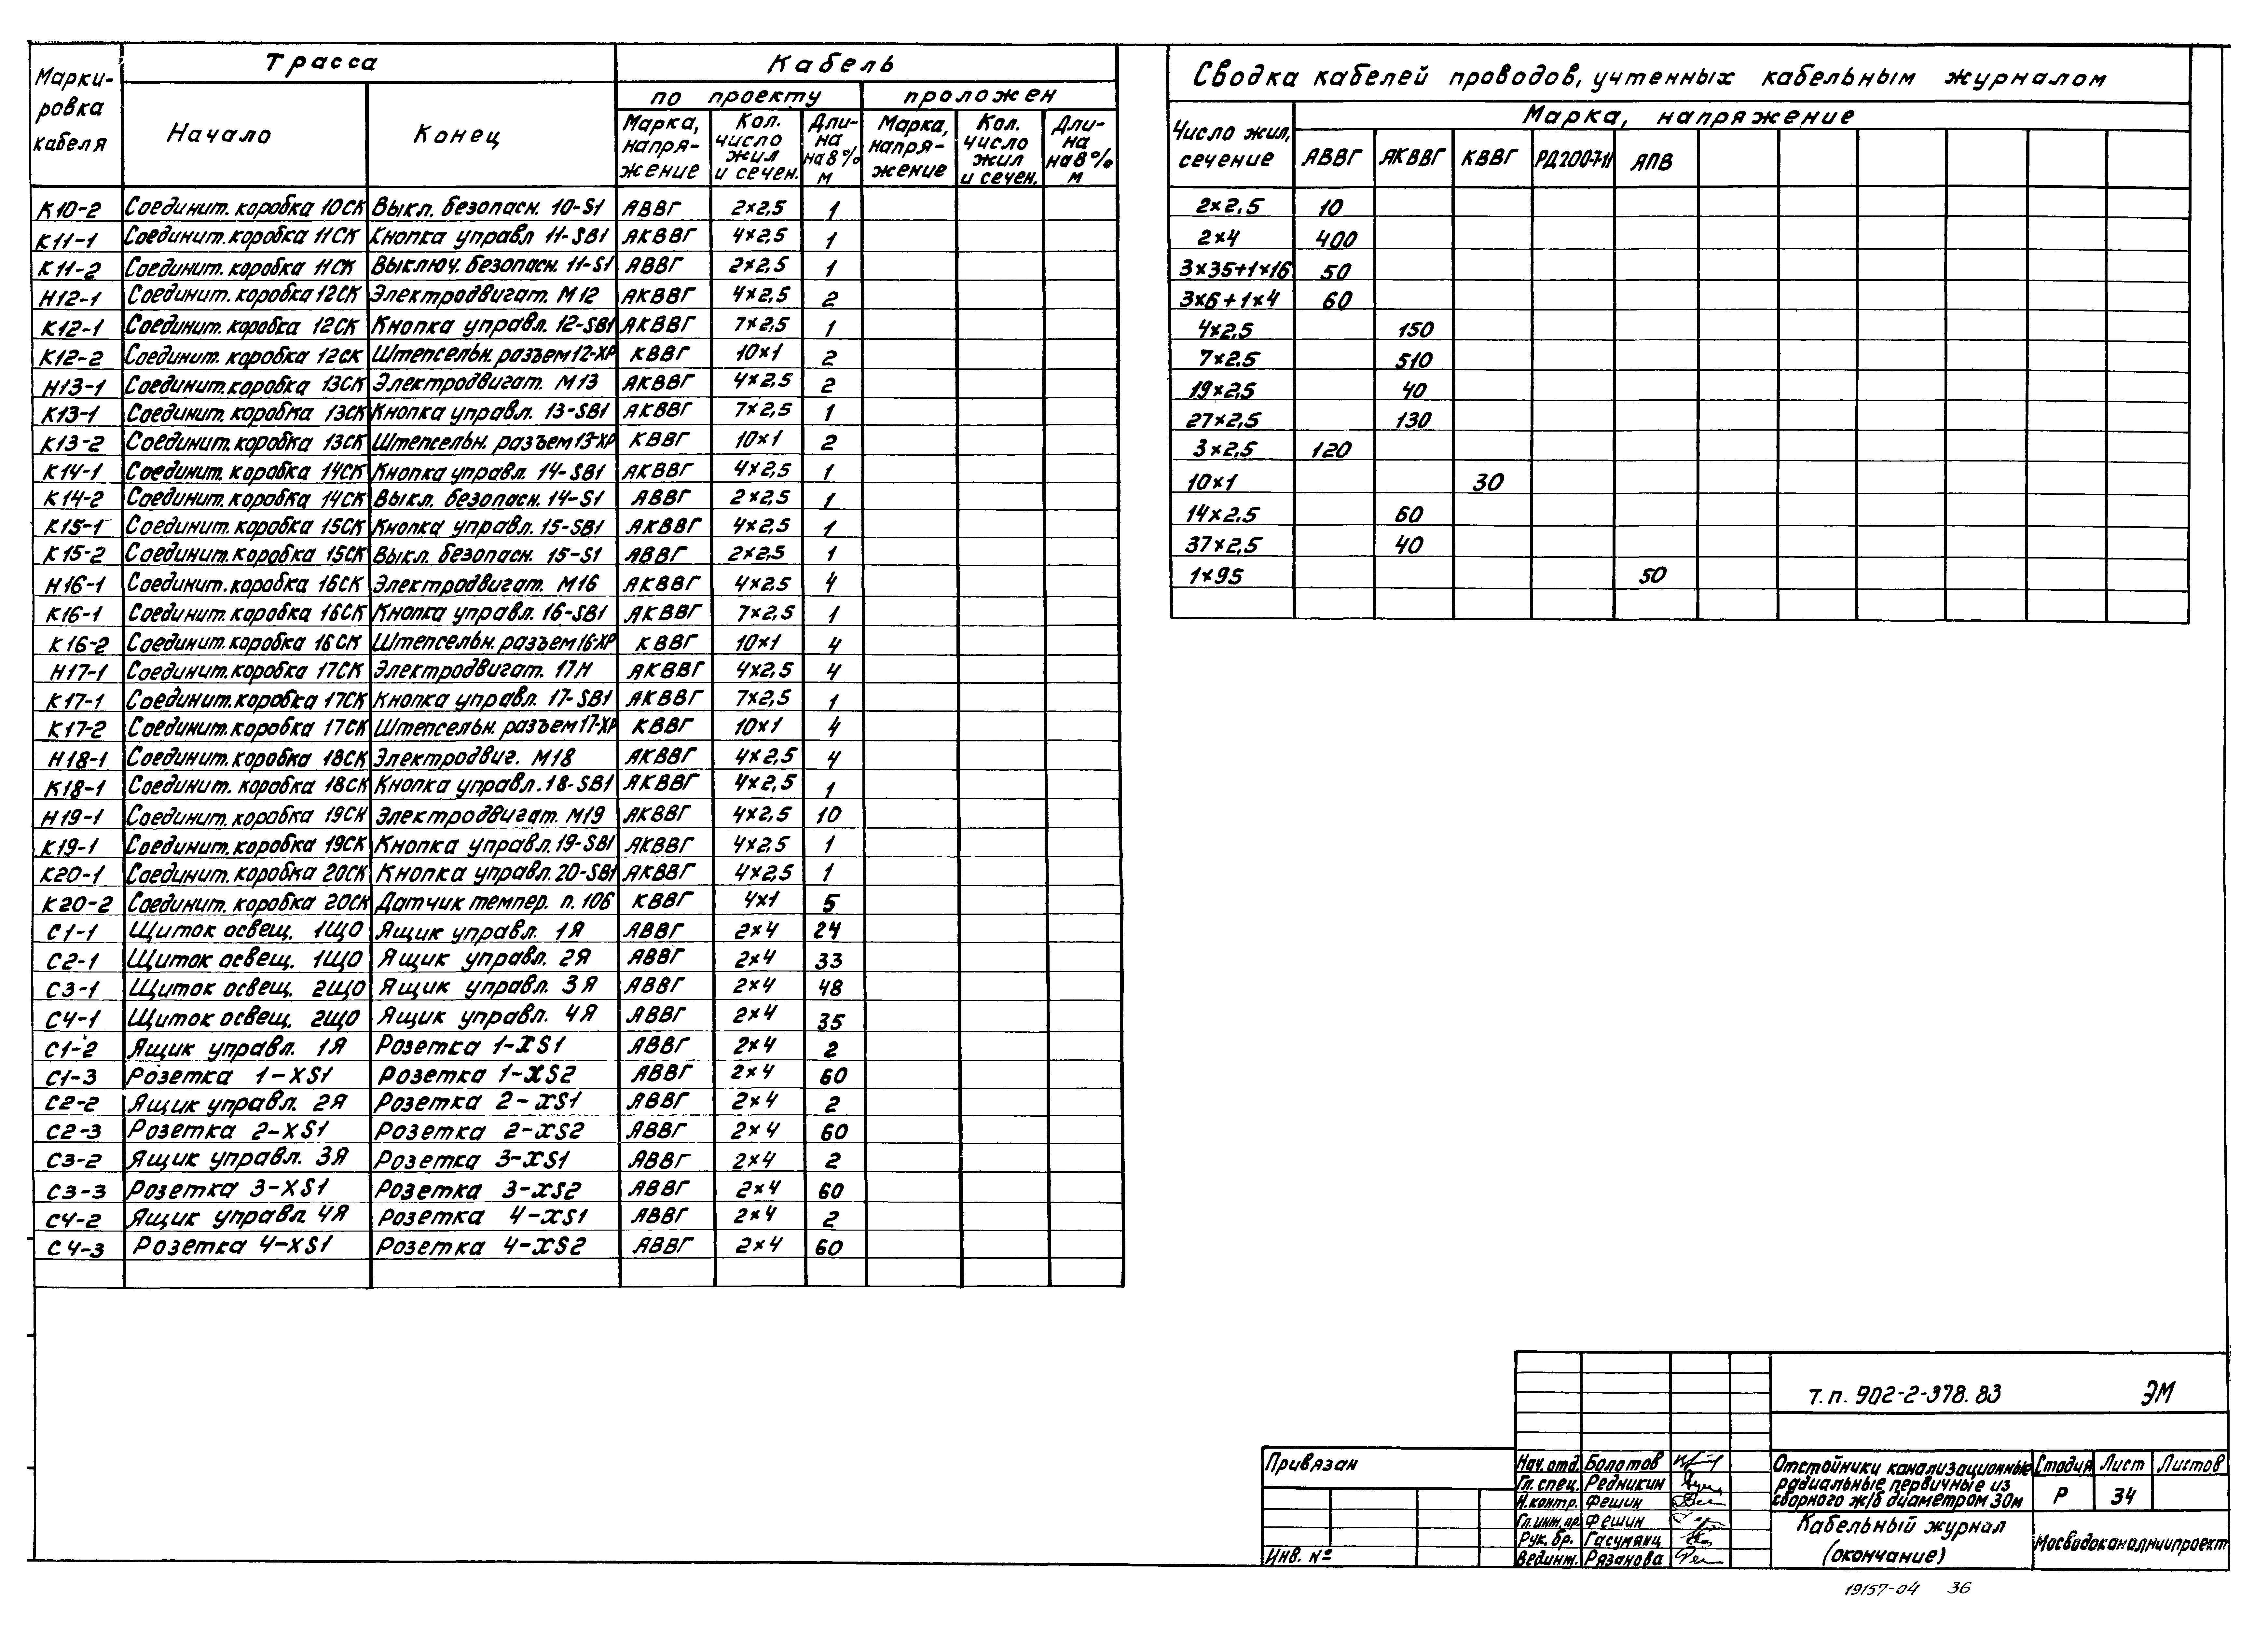 Марки-
ровка
кабеля
Трасса
Кабель
Начало
Конец
по проекту
проложен
Марка, напря-жение
Кол. число жил и сечен.
Дли-на на 8% м
Марка, напря-жение
Кол. число жил и сечен.
Дли-на на 8% м
К10-2 Соединит. коробка 10СК Выкл. безопасн. 10-S1 АВВГ 2×2,5 1
К11-1 Соединит. коробка 11СК Кнопка управл 11-SB1 АКВВГ 4×2,5 1
К11-2 Соединит. коробка 11СК Выключ. безопасн. 11-S1 АВВГ 2×2,5 1
Н12-1 Соединит. коробка 12СК Электродвигат. М12 АКВВГ 4×2,5 2
К12-1 Соединит. коробка 12СК Кнопка управл. 12-SB1 АКВВГ 7×2,5 1
К12-2 Соединит. коробка 12СК Штепсельн. разъем 12-ХР КВВГ 10×1 2
Н13-1 Соединит. коробка 13СК Электродвигат. М13 АКВВГ 4×2,5 2
К13-1 Соединит. коробка 13СК Кнопка управл. 13-SB1 АКВВГ 7×2,5 1
К13-2 Соединит. коробка 13СК Штепсельн. разъем 13-ХР КВВГ 10×1 2
К14-1 Соединит. коробка 14СК Кнопка управл. 14-SB1 АКВВГ 4×2,5 1
К14-2 Соединит. коробка 14СК Выкл. безопасн. 14-S1 АВВГ 2×2,5 1
К15-1 Соединит. коробка 15СК Кнопка управл. 15-SB1 АКВВГ 4×2,5 1
К15-2 Соединит. коробка 15СК Выкл. безопасн. 15-S1 АВВГ 2×2,5 1
Н16-1 Соединит. коробка 16СК Электродвигат. М16 АКВВГ 4×2,5 4
К16-1 Соединит. коробка 16СК Кнопка управл. 16-SB1 АКВВГ 7×2,5 1
К16-2 Соединит. коробка 16СК Штепсельн. разъем 16-ХР КВВГ 10×1 4
Н17-1 Соединит. коробка 17СК Электродвигат. 17Н АКВВГ 4×2,5 4
К17-1 Соединит. коробка 17СК Кнопка управл. 17-SB1 АКВВГ 7×2,5 1
К17-2 Соединит. коробка 17СК Штепсельн. разъем 17-ХР КВВГ 10×1 4
Н18-1 Соединит. коробка 18СК Электродвиг. М18 АКВВГ 4×2,5 4
К18-1 Соединит. коробка 18СК Кнопка управл. 18-SB1 АКВВГ 4×2,5 1
Н19-1 Соединит. коробка 19СК Электродвигат. М19 АКВВГ 4×2,5 10
К19-1 Соединит. коробка 19СК Кнопка управл. 19-SB1 АКВВГ 4×2,5 1
К20-1 Соединит. коробка 20СК Кнопка управл. 20-SB1 АКВВГ 4×2,5 1
К20-2 Соединит. коробка 20СК Датчик темпер. п. 10б КВВГ 4×1 5
С1-1 Щиток освещ. 1ЩО Ящик управл. 1Я АВВГ 2×4 24
С2-1 Щиток освещ. 1ЩО Ящик управл. 2Я АВВГ 2×4 33
С3-1 Щиток освещ. 2ЩО Ящик управл. 3Я АВВГ 2×4 48
С4-1 Щиток освещ. 2ЩО Ящик управл. 4Я АВВГ 2×4 35
С1-2 Ящик управл. 1Я Розетка 1-XS1 АВВГ 2×4 2
С1-3 Розетка 1-XS1 Розетка 1-XS2 АВВГ 2×4 60
С2-2 Ящик управл. 2Я Розетка 2-XS1 АВВГ 2×4 2
С2-3 Розетка 2-XS1 Розетка 2-XS2 АВВГ 2×4 60
С3-2 Ящик управл. 3Я Розетка 3-XS1 АВВГ 2×4 2
С3-3 Розетка 3-XS1 Розетка 3-XS2 АВВГ 2×4 60
С4-2 Ящик управл. 4Я Розетка 4-XS1 АВВГ 2×4 2
С4-3 Розетка 4-XS1 Розетка 4-XS2 АВВГ 2×4 60
Сводка кабелей проводов, учтенных кабельным журналом
Число жил, сечение
Марка, напряжение
АВВГ АКВВГ КВВГ РД200711 АПВ
2×2,5 10
2×4 400
3×35+1×16 50
3×6+1×4 60
4×2,5 150
7×2,5 510
19×2,5 40
27×2,5 130
3×2,5 120
10×1 30
14×2,5 60
37×2,5 40
1×95 50
т.п. 902-2-378.83 ЭМ
Привязан
Инв. №
Нач. отд. Болотов
Гл. спец. Редникин
Н.контр. Фешин
Гл.инж.пр. Фешин
Рук. бр. Гасумянц
Вед.инж. Рязанова
Отстойники канализационные
радиальные первичные из
сборного ж/б диаметром 30м
Стадия Лист Листов
Р 34
Кабельный журнал
(окончание)
Мосводоканалниипроект
19157-04 36